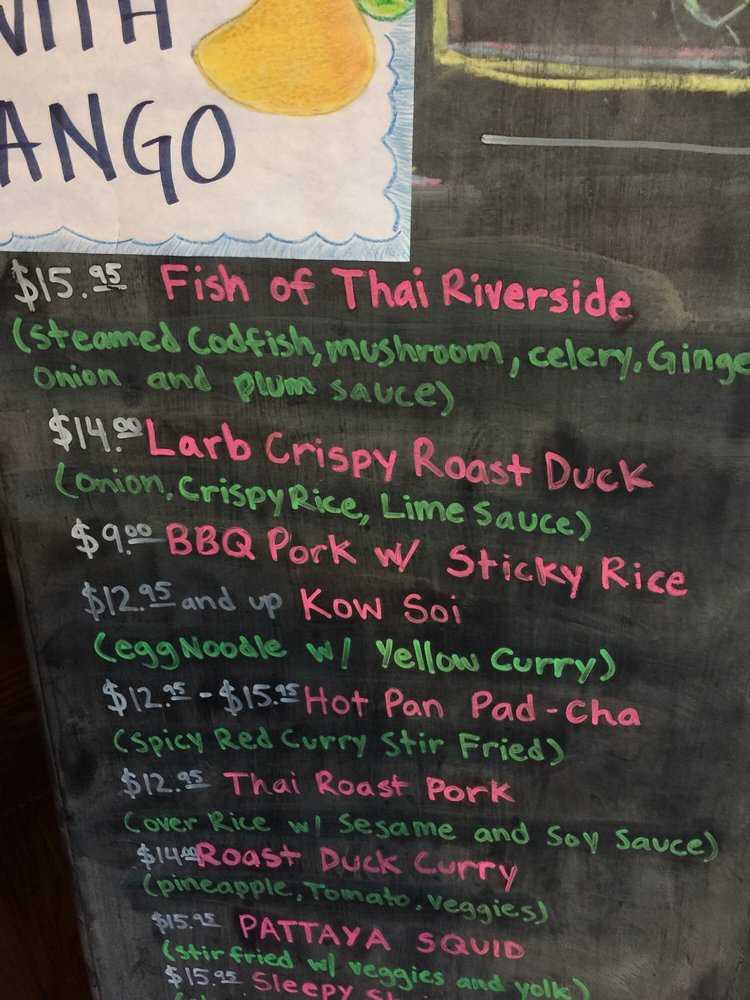 WITH
ANGO
$15.95 Fish of Thai Riverside
(Steamed Codfish, mushroom, celery, Ginge
Onion and plum sauce)
$14.00 Larb Crispy Roast Duck
(onion, Crispy Rice, Lime Sauce)
$9.00 BBQ Pork w/ Sticky Rice
$12.95 and up Kow Soi
(egg Noodle w/ Yellow Curry)
$12.95 - $15.95 Hot Pan Pad-Cha
(Spicy Red Curry Stir Fried)
$12.95 Thai Roast Pork
(over Rice w/ Sesame and Soy Sauce)
$14.00 Roast Duck Curry
(pineapple, Tomato, veggies)
$15.95 PATTAYA SQUID
(stir fried w/ veggies and yolk)
$15.95 Sleepy